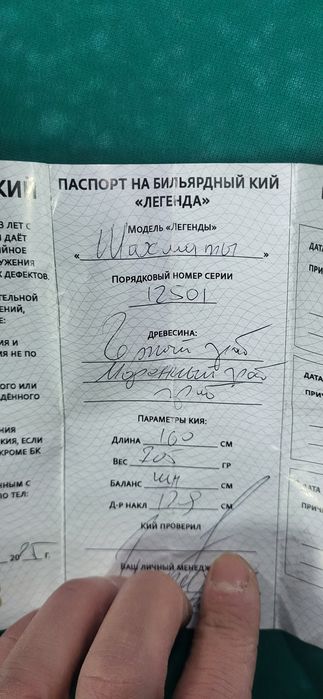 КИЙ
ПАСПОРТ НА БИЛЬЯРДНЫЙ КИЙ
«ЛЕГЕНДА»
МОДЕЛЬ «ЛЕГЕНДЫ»
« Шахматы »
ПОРЯДКОВЫЙ НОМЕР СЕРИИ
12501
ДРЕВЕСИНА:
граб
Мореный граб
граб
ПАРАМЕТРЫ КИЯ:
ДЛИНА 160 СМ
ВЕС 805 ГР
БАЛАНС СМ
Д-Р НАКЛ 12,8 СМ
КИЙ ПРОВЕРИЛ
ВАШ ЛИЧНЫЙ МЕНЕДЖ
3 ЛЕТ С
ДАЁТ
ДЕФЕКТОВ.
ИЯ И
НЕ ПО
ОГО ИЛИ
ДЁННОГО
КИЯ, ЕСЛИ
КРОМЕ БК
НЫМ С
ПО ТЕЛ:
2025 г.
ДАТА
ПРИЧ
ДАТА
ПРИЧ
ДАТА
ПРИЧ